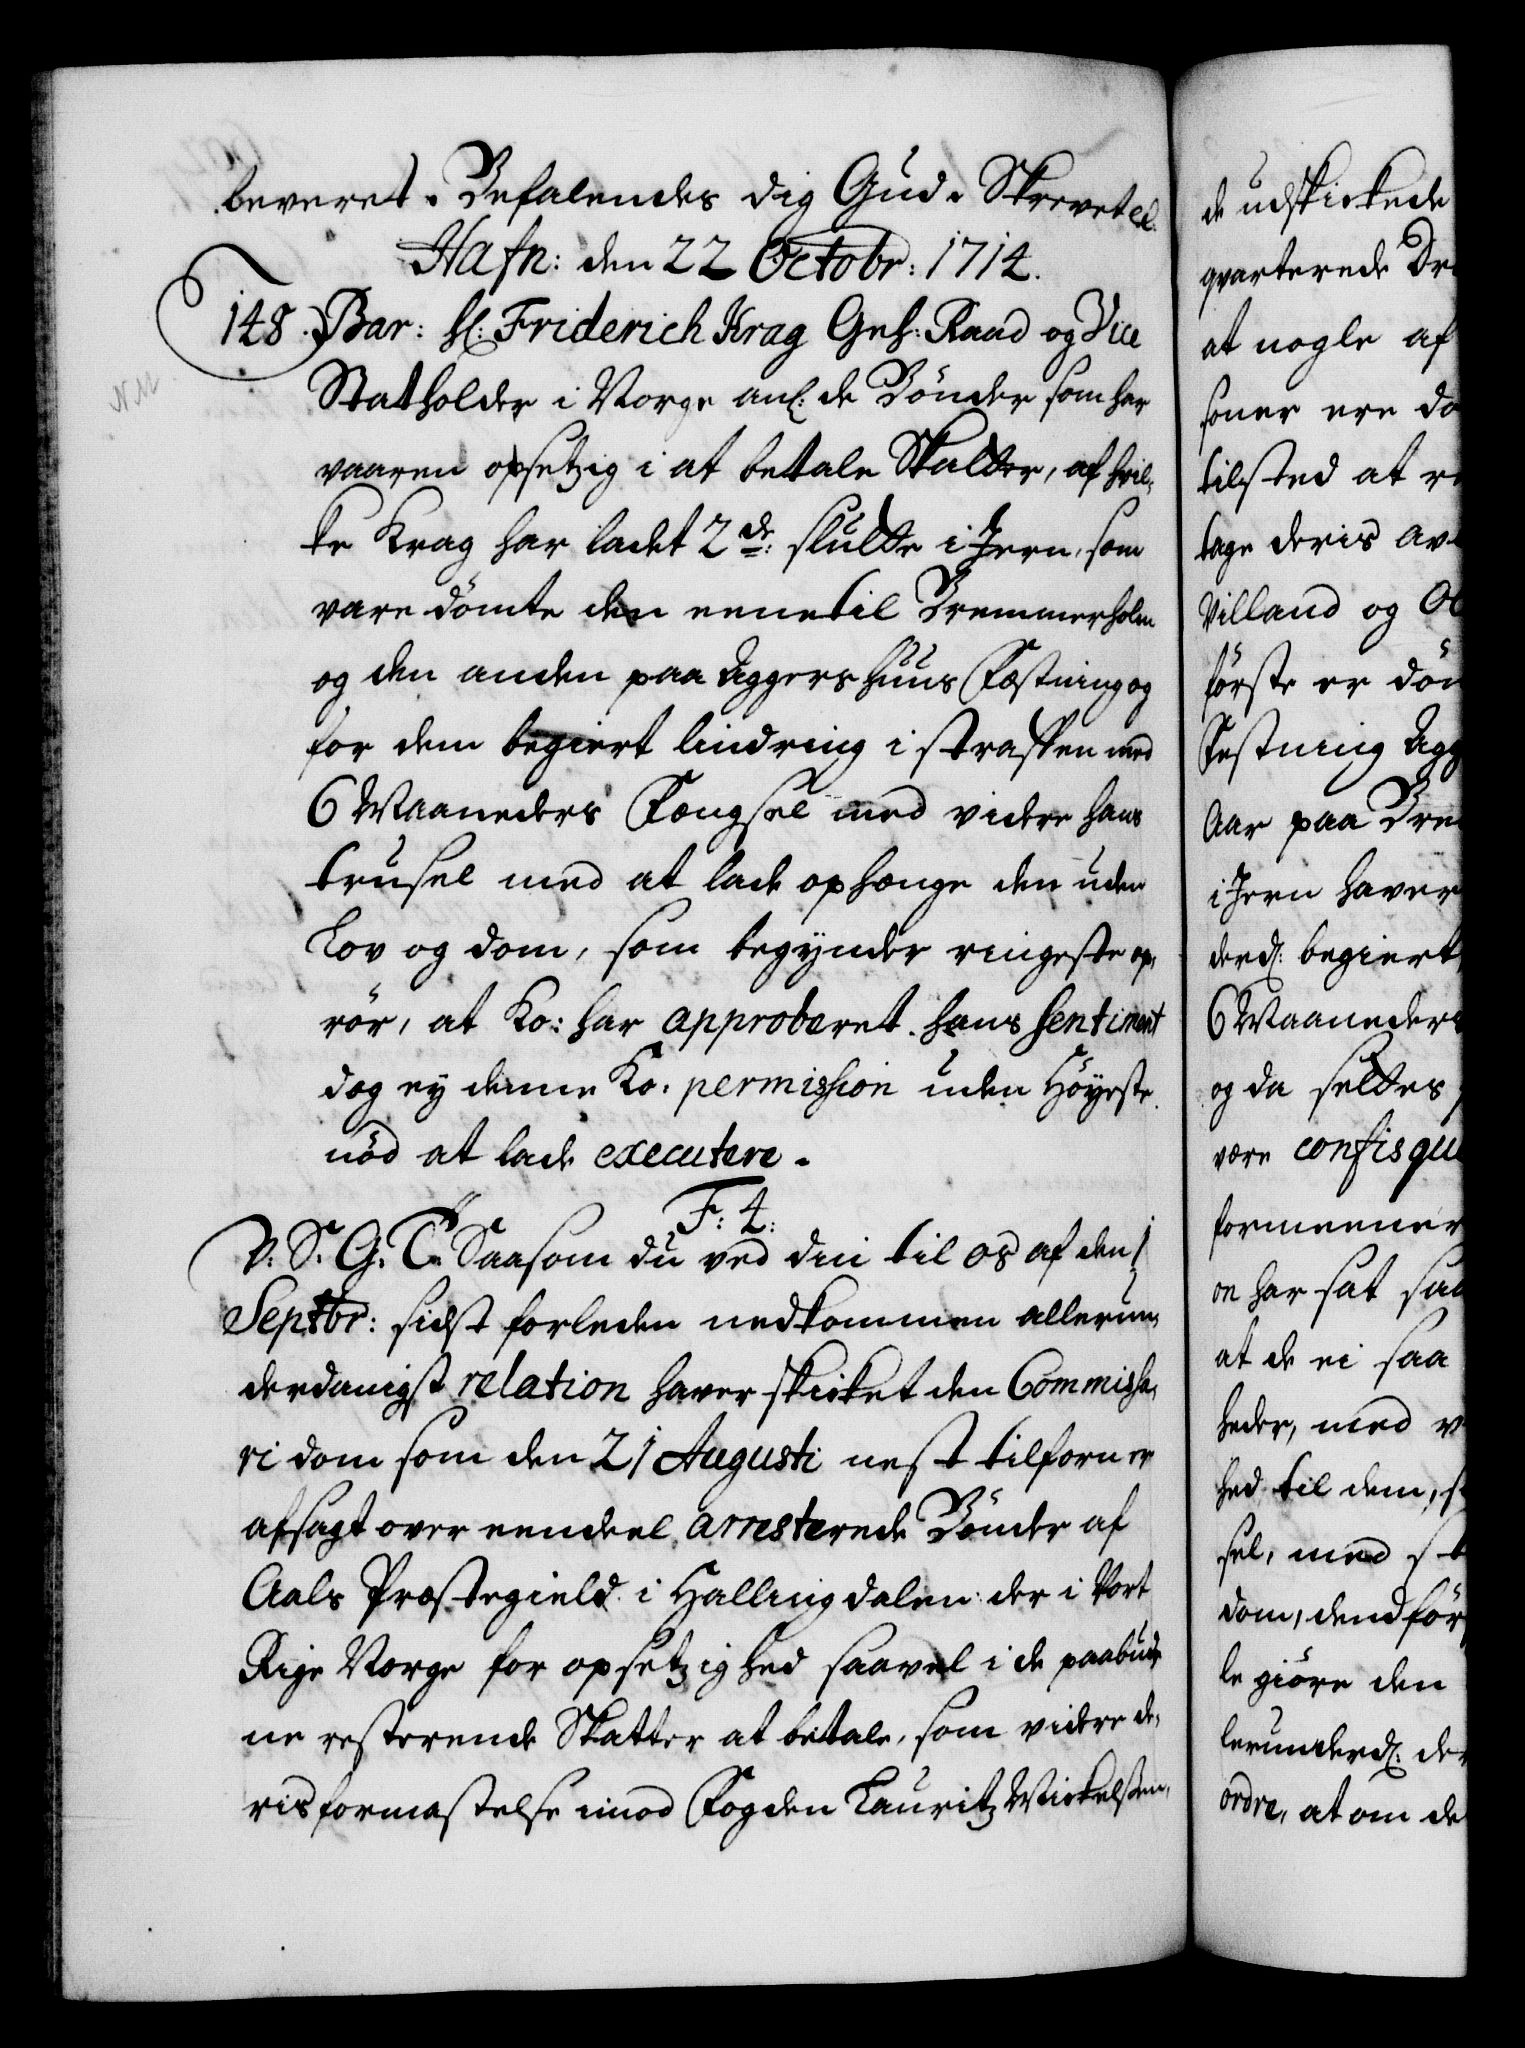 beveret. Befalendes dig Gud. Skrevet etc.
Hafn: den 22 Octobr: 1714.
148. Bar: H: Friderich Krag Geh: Raad og Vice
Statholder i Norge anl: de Bönder som har
vaaren opsetzig i at betale Skatter, af hvil-
ke Krag har ladet 2de: slutte i Jern, som
vare dömte den eene til Bremmerholm
og den anden paa Aggershuus Fæstning og
for dem begiert lindring i straffen med
6 Maaneders Fængsel med videre hans
trusel med at lade ophænge den uden
Lov og dom, som begynder ringeste op-
rör, at Ko: har approberet hans Sentiment
dog ey denne Ko: permission uden Höyeste
nöd at lade executere.
F: 4:
V. S. G. T. Saasom du ved din til os af den 1
Septbr: sidst forleden nedkommen allerun-
derdanigst relation haver skicket den Commissa-
ri dom som den 21 Augusti nest tilforn er
afsagt over eendeel arresterede Bönder af
Aals Præstegield i Hallingdalen der i Vort
Rige Norge for opsetzighed saavel i de paabud-
ne resterende Skatter at betale, som videre de-
ris formastelse imod Fogden Lauritz Mickelsen,
de udskickede
qvarterede Dr
at nogle af
soner ere do
tilsted at re
tage deris av
Villand og Ol
förste er döm
Festning Agg
Aar paa Brem
i Jern haver
derd: begiert
6 Maaneders
og da settes
være confisque
formeener
on har sat saa
at de ei saa
heder, med v
hed til dem, s
sel, med st
dom, dend för
le giöre den
lerunderd: der
ordre, at om de